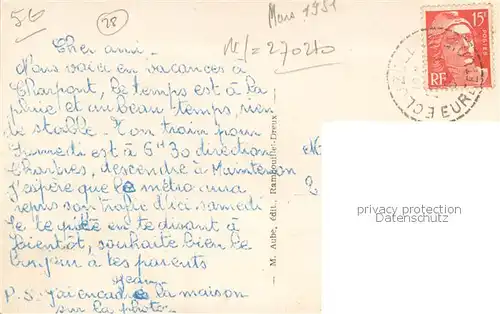 5€
28
Mars 1951
N/= 27020
15F
POSTES
RF
EURE
Cher ami.
Nous voici en vacances à
Charpont, le temps est à la
pluie et au beau temps, rien
de stable. Ton train pour
Samedi est à 6H30 direction
Chartres, descendre à Maintenon
J'espère que le métro aura
repris son trafic d'ici samedi
Je te quitte en te disant à
bientôt, souhaite bien le
bonjour à tes parents
Jean
P.S. J'ai encadré la maison
sur la photo.
M. Aube, édit. Rambouillet-Dreux
privacy protection
Copyright